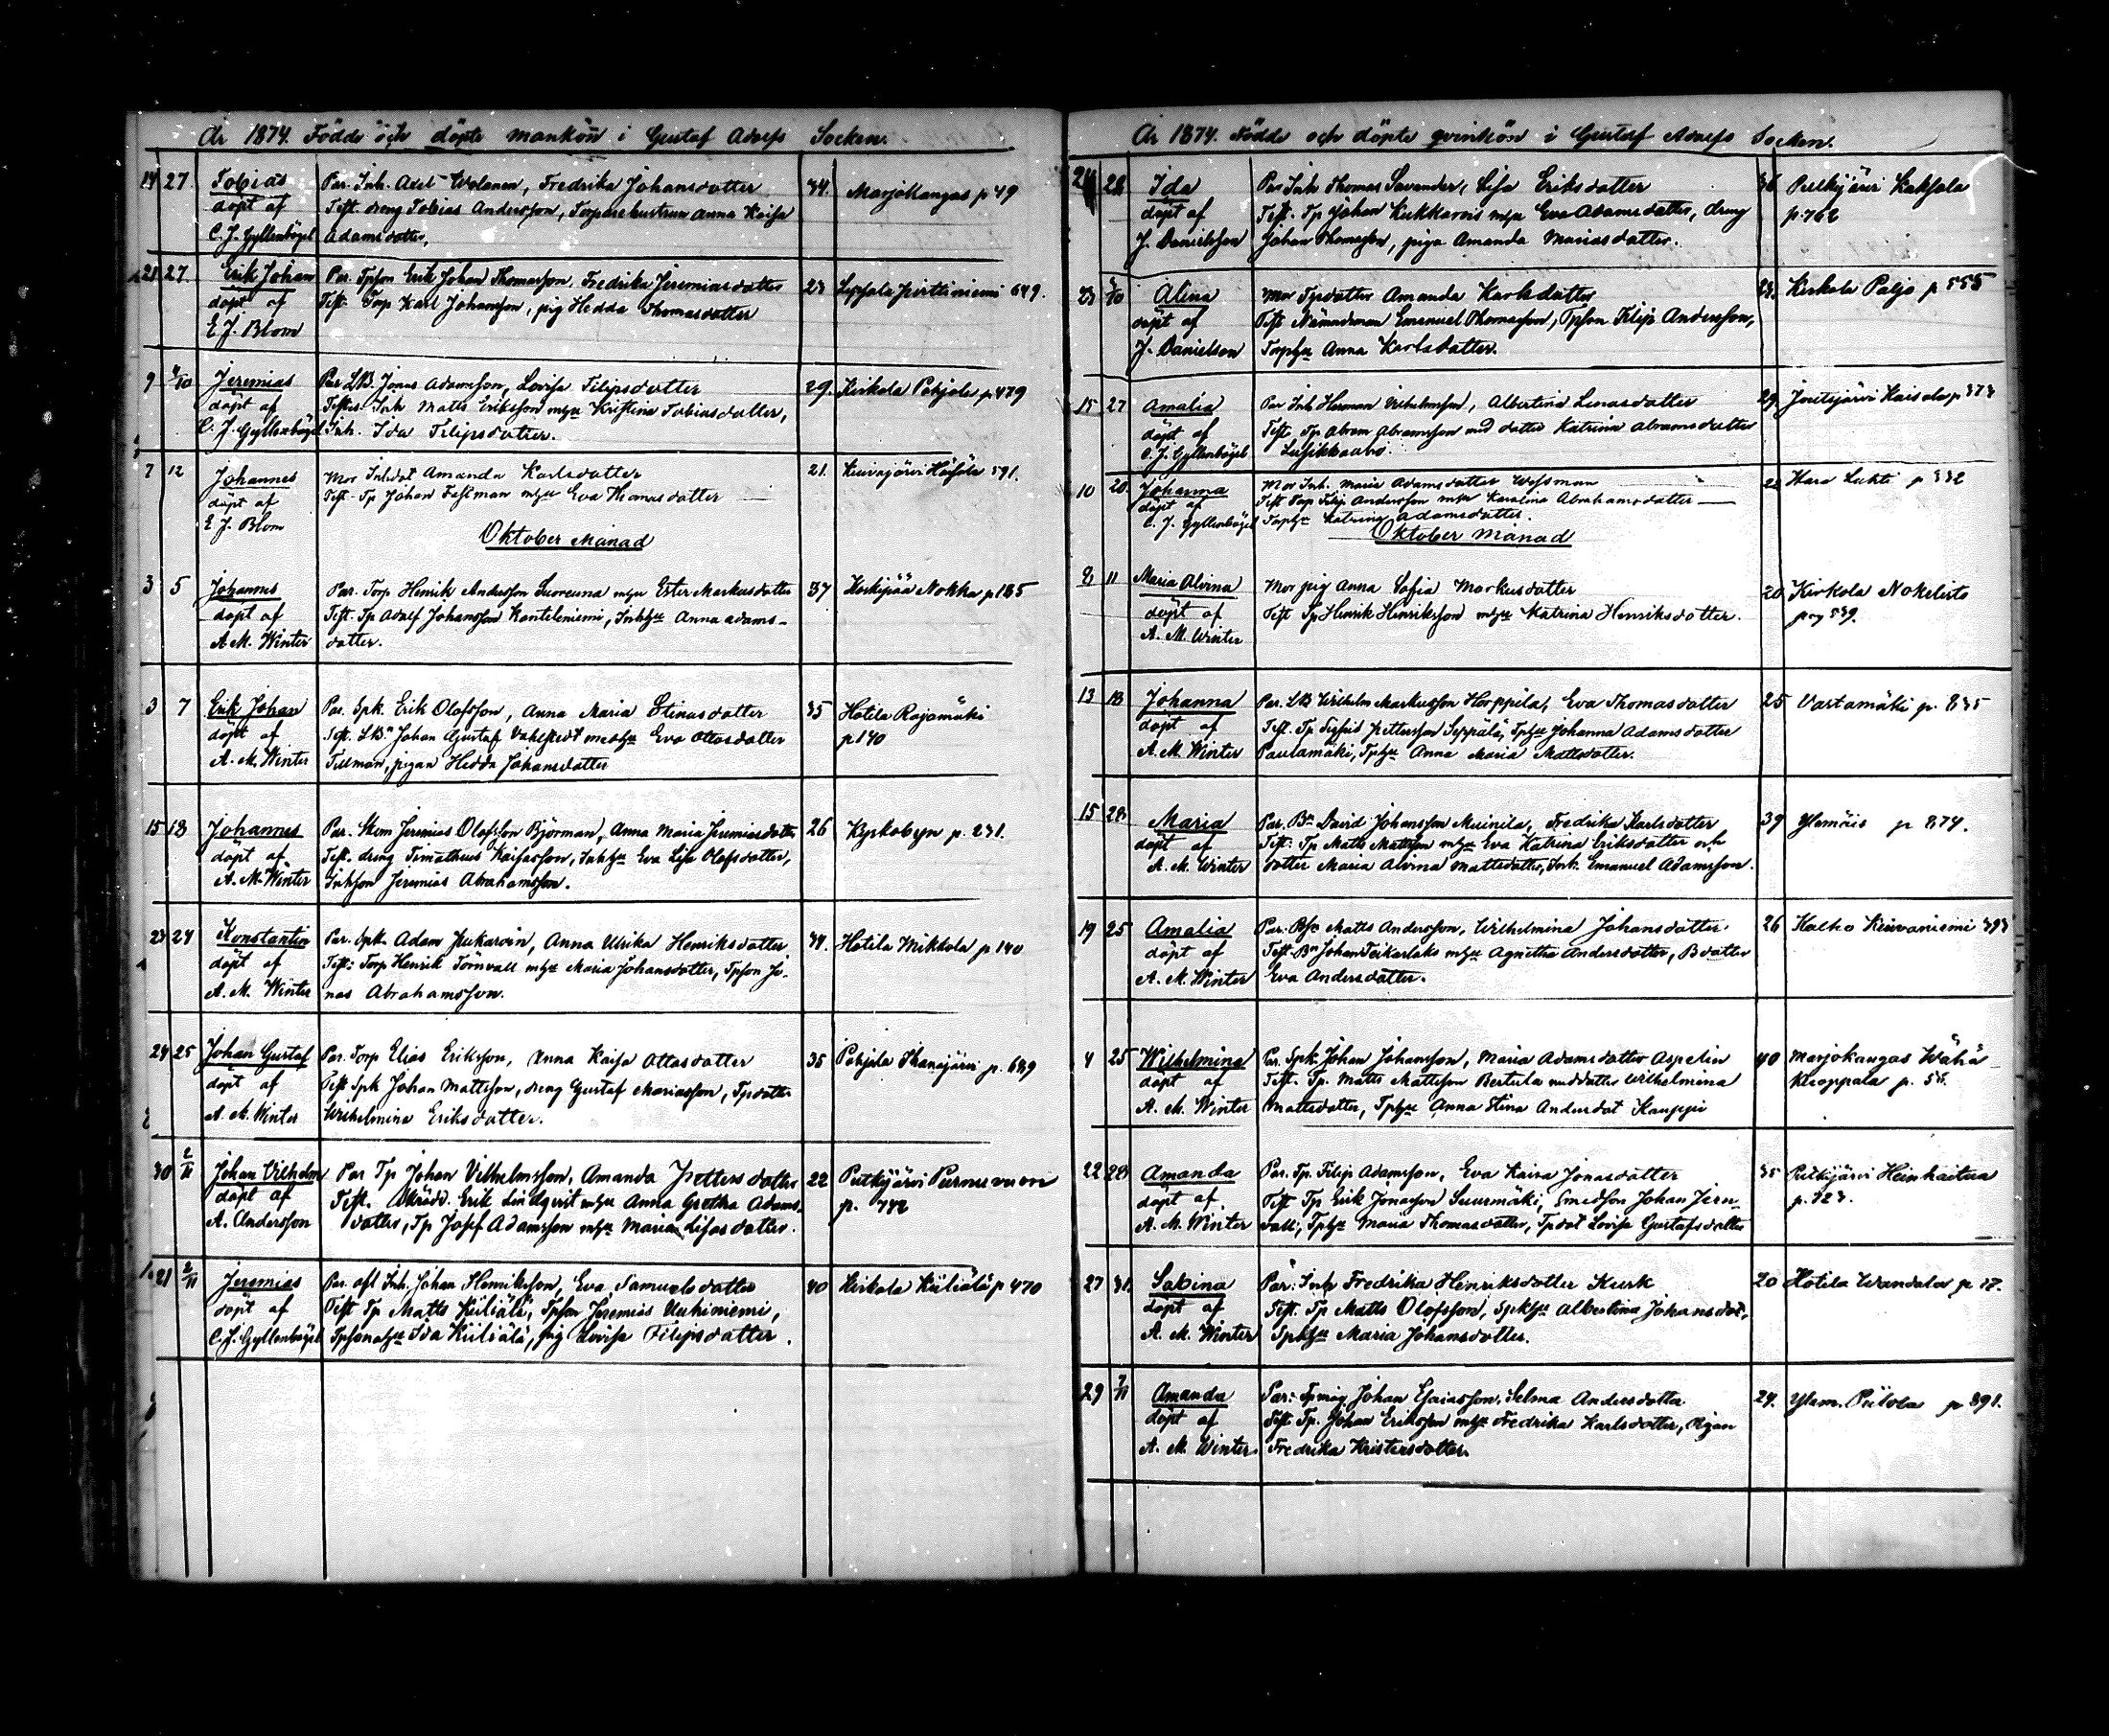 År 1874. Födde och döpte mankön i Gustaf Adolfs Socken.
14 27. Tobias Par. Inh. Axel Wolanen, Fredrika Johansdotter 34. Marjokangas p 49
döpt af Test. dreng Tobias Andersson, Torparehustrun Anna Kaisa
C. J. Gyllenbögel Adamsdotter,
21 27. Erik Johan Par. Tpson Erik Johan Thomasson, Fredrika Jeremiasdotter 23 Seppala Perttiniemi 649.
döpt af Test. Torp Karl Johansson, pig Hedda Thomasdotter
E J. Blom
9 4/10 Jeremias Par LB. Jonas Adamsson, Lovisa Filipsdotter 29. Kirkola Pohjola p 479
döpt af Testes: Inh Matts Eriksson m hu Kristina Tobiasdotter,
C. J. Gyllenbögel Inh. Ida Filipsdotter.
7 12 Johannes Mor Inhdot Amanda Karlsdotter 21. Kuivajärvi 591.
döpt af Test. Tp Johan Fastman m hu Eva Thomasdotter
E J. Blom
Oktober Månad
3 5 Johannes Par. Torp Henrik Andersson m hu Ester Markusdotter 37 Koskipää Nokka p 185
döpt af Test. Tp Adolf Johansson Kanteleniemi, Inhhu Anna Adams-
A. M. Winter dotter.
3 7 Erik Johan Par. Spk. Erik Olofsson, Anna Maria Stinasdotter 35 Hotila Rajamäki
döpt af Test. LBn Johan Gustaf Vahlstedt med hu Eva Ottosdotter p 140
A. M. Winter Tillman, pigan Hedda Johansdotter
15 18 Johannes Par. Skom Jeremias Olofsson Björman, Anna Maria Jeremiasdotter 26 Kyrkobyn p. 231.
döpt af Test. dreng Timotheus Kaisasson, Inhhu Eva Lisa Olofsdotter,
A. M. Winter Inhson Jeremias Abrahamsson.
23 24 Konstantin Par. Spk. Adam Kukarvin, Anna Ulrika Henriksdotter 34. Hotila Mikkola p 140
döpt af Test: Torp Henrik Törnvall m hu Maria Johansdotter, Tpson Jo-
A. M. Winter nas Abrahamsson.
24 25 Johan Gustaf Par. Torp Elias Eriksson, Anna Kaisa Ottosdotter 35 Pohjola p. 689
döpt af Test Spk Johan Mattsson, dreng Gustaf Mariasson, Tpdotter
A. M. Winter Wilhelmina Eriksdotter.
30 2/11 Johan Vilhelm Par Tp Johan Vilhelmsson, Amanda Pettersdotter 22 Putkijärvi
döpt af Test. Skrädd. Erik Lindqvist m hu Anna Gretha Adams- p. 742
A. Andersson dotter, Tp Josef Adamsson m hu Maria Lisasdotter.
21 2/11 Jeremias Par. afl Inh. Johan Henriksson, Eva Samuelsdotter 40 Kirkola Kiiliälä p 470
döpt af Test Tp Matts Kiiliälä, Tpson Jeremias Uuhiniemi,
C. J. Gyllenbögel Tpsonahu Ida Kiiliälä, pig Lovisa Filipsdotter.
År 1874. Födde och döpte qvinkön i Gustaf Adolfs Socken.
28 Ida Par Inh Thomas Savander, Lisa Eriksdotter 36 Putkijärvi Kaksola
döpt af Test. Tp Johan Kukkarois m hu Eva Adamsdotter, dreng p. 762
J. Danielsson Johan Thomasson, piga Amanda Mariasdotter.
23 /10 Alina Mor Tpdotter Amanda Karlsdotter 23. Kirkola Paljo p 555
döpt af Test Nämndeman Emanuel Thomasson, Tpson Filip Andersson,
J. Danielson Torphu Anna Karlsdotter.
15 27 Amalia Par Inh Herman Vilhelmsson, Albertina Lenasdotter 29 Joutsjärvi Kaisala p 373
döpt af Test. Tp Abram Abramsson med dotter Katrina Abramsdotter
C. J. Gyllenbögel
10 20 Johanna Mor Inh. Maria Adamsdotter Wessman 22 Hara Lahti p 332
döpt af Test Torp Filip Andersson m hu Karolina Abrahamsdotter
C. J. Gyllenbögel Torphu Katrina Adamsdotter.
Oktober månad
8 11 Maria Alvina Mor pig Anna Sofia Markusdotter 20 Kirkola Nokelisto
döpt af Test Tp Henrik Henriksson m hu Katrina Henriksdotter. pag 539.
A. M. Winter
13 18 Johanna Par. LB Wilhelm Markusson Horppila, Eva Thomasdotter 25 Vartamäki p. 835
döpt af Test. Tp Sigfrid Pettersson Seppälä, Tphu Johanna Adamsdotter
A. M. Winter Pauramäki, Tphu Anna Maria Mattsdotter.
15 28 Maria Par. Bn David Johansson Muinila, Fredrika Karlsdotter 39 Ylemäis p 874.
döpt af Test: Tp Matts Mattsson m hu Eva Katrina Eriksdotter och
A. M. Winter dotter Maria Alvina Mattsdotter, Inh. Emanuel Adamsson.
19 25 Amalia Par: Matts Andersson, Wilhelmina Johansdotter 26 Kalho Keivaniemi 393
döpt af Test. Bn Johan Teikarlaks m hu Agnetha Andersdotter, Bdotter
A. M. Winter Eva Andersdotter.
4 25 Wilhelmina Par. Spk. Johan Johansson, Maria Adamsdotter Aspelin 40 Marjokangas Wähä
döpt af Test. Tp. Matts Mattsson Bertula med dotter Wilhelmina Kroppala p. 55.
A. M. Winter Mattsdotter, Tphu Anna Stina Andersdot Kauppi
22 28 Amanda Par. Tp. Filip Adamsson, Eva Kaisa Jonasdotter 35 Putkijärvi Heinkaitaa
döpt af Test Tp Erik Jonasson Suurmäki, Smedson Johan Jern- p. 723.
A. M. Winter vall, Tphu Maria Thomasdotter, Tpdot Lovisa Gustafsdotter
27 31. Sabina Par. Inh Fredrika Henriksdotter Kurk 20 Hotila Wandala p 17.
döpt af Test. Tp Matts Olofsson, Spkhu Albertina Johansdot,
A. M. Winter Spkhu Maria Johansdotter.
29 7/11 Amanda Par: Tpmåg Johan Esaiasson, Selma Andersdotter 24. Ylem. Piilola p 891.
döpt af Test Tp. Johan Eriksson m hu Fredrika Karlsdotter, Pigan
A. M. Winter Fredrika Kristersdotter.